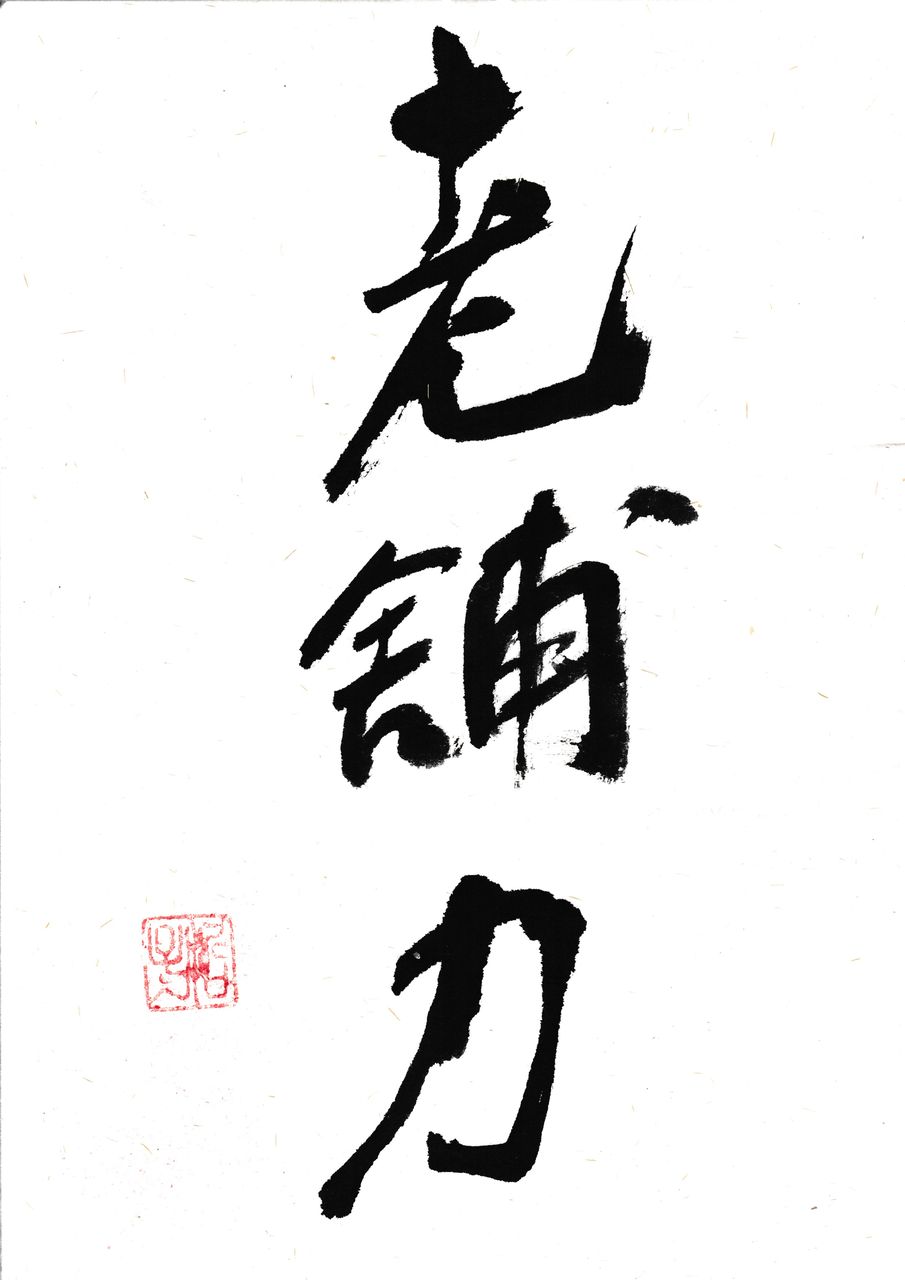 老舗力